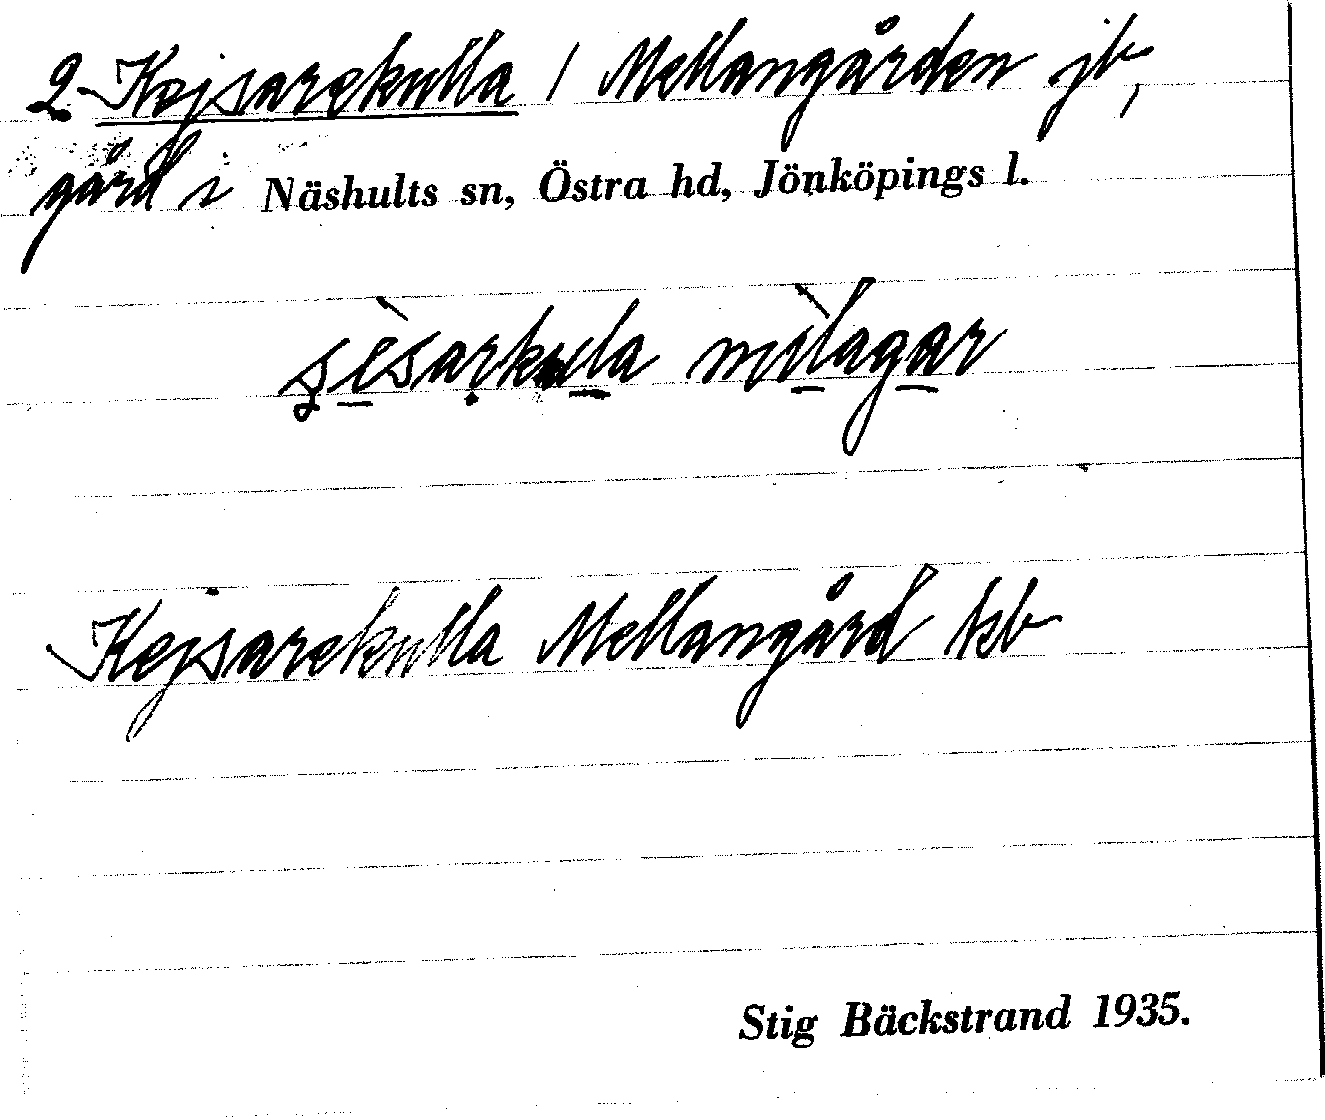 2 Kejsarekulla / Mellangården jb,
gård i Näshults sn, Östra hd, Jönköpings l.
Kejsarekulla Mellangård
Stig Bäckstrand 1935.